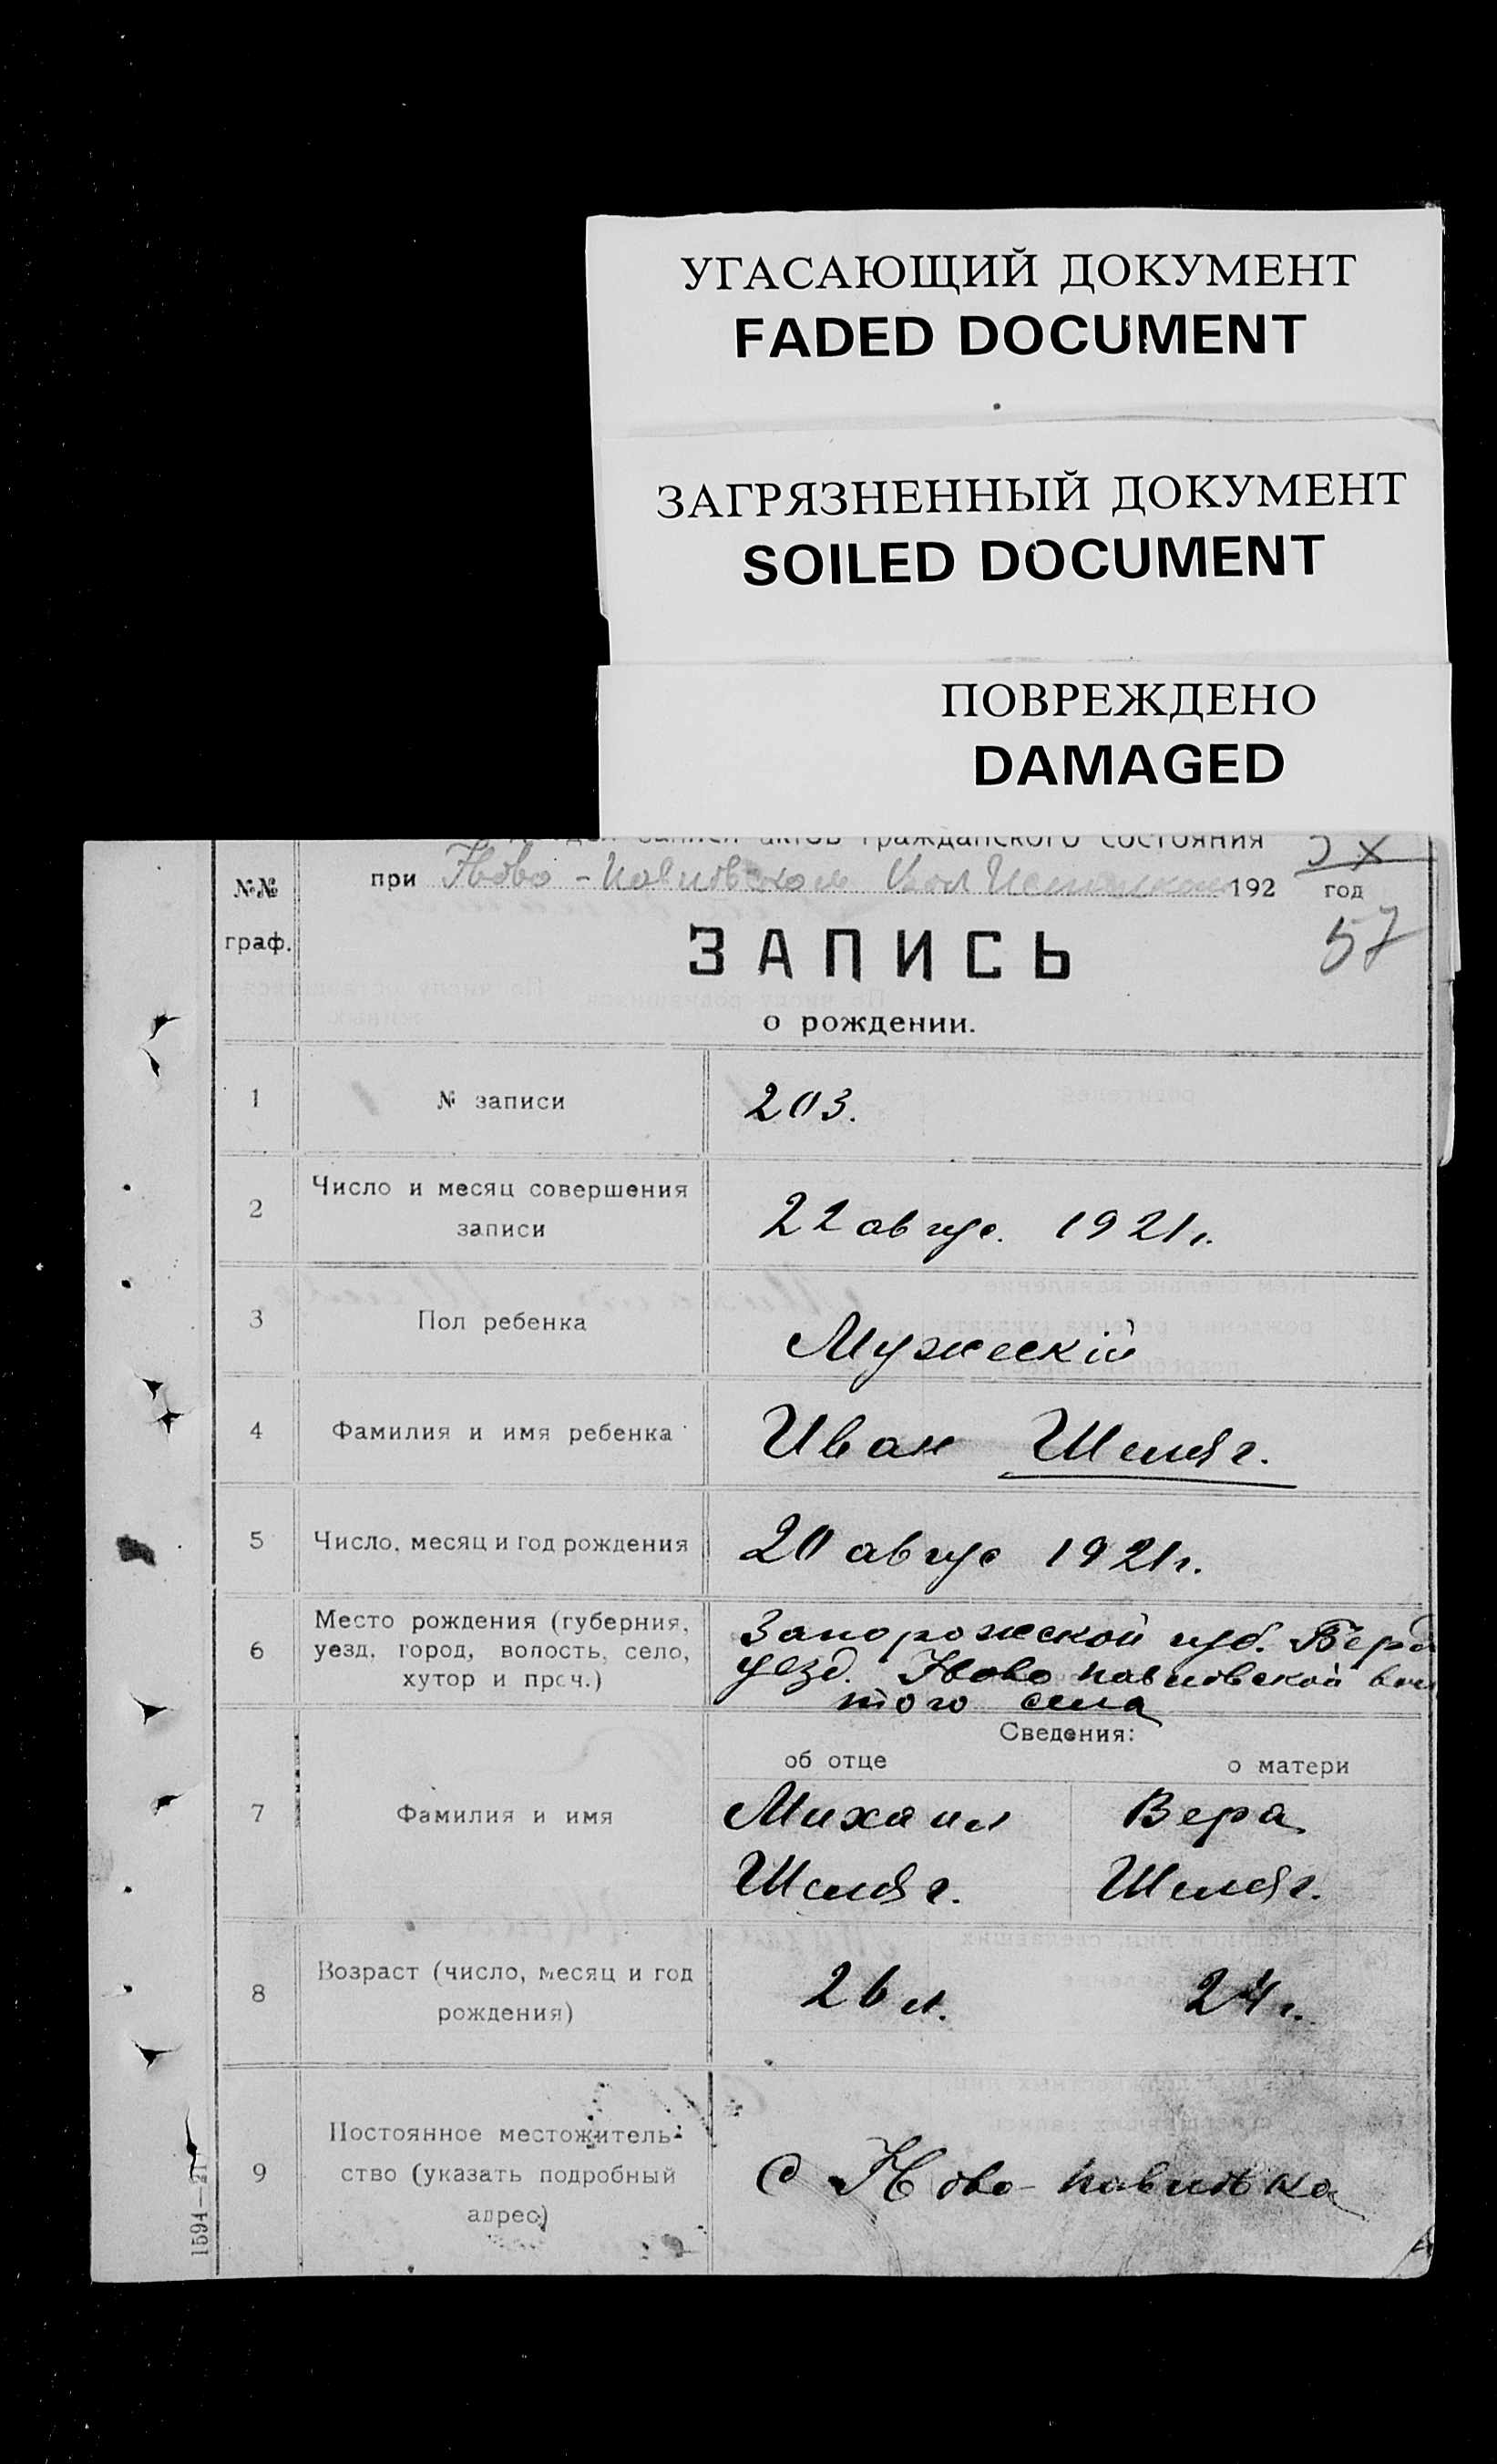 УГАСАЮЩИЙ ДОКУМЕНТ
FADED DOCUMENT
ЗАГРЯЗНЕННЫЙ ДОКУМЕНТ
SOILED DOCUMENT
ПОВРЕЖДЕНО
DAMAGED
записи актов гражданского состояния
№№ граф.
при Ново-Павловском 192 год
57
ЗАПИСЬ
о рождении.
1 № записи 203.
2 Число и месяц совершения
записи 22 авгус. 1921 г.
3 Пол ребенка Мужескій
4 Фамилия и имя ребенка Иван
5 Число, месяц и год рождения 20 авгус 1921 г.
6 Место рождения (губерния,
уезд, город, волость, село,
хутор и проч.)
Запорожской губ. Берд
уезд. Ново Павловской вол
того села
Сведения:
об отце о матери
7 Фамилия и имя Михаил Вера
8 Возраст (число, месяц и год
рождения) 26 л. 24 г.
9 Постоянное местожитель-
ство (указать подробный
адрес)
с Ново-Павловка
1594—21